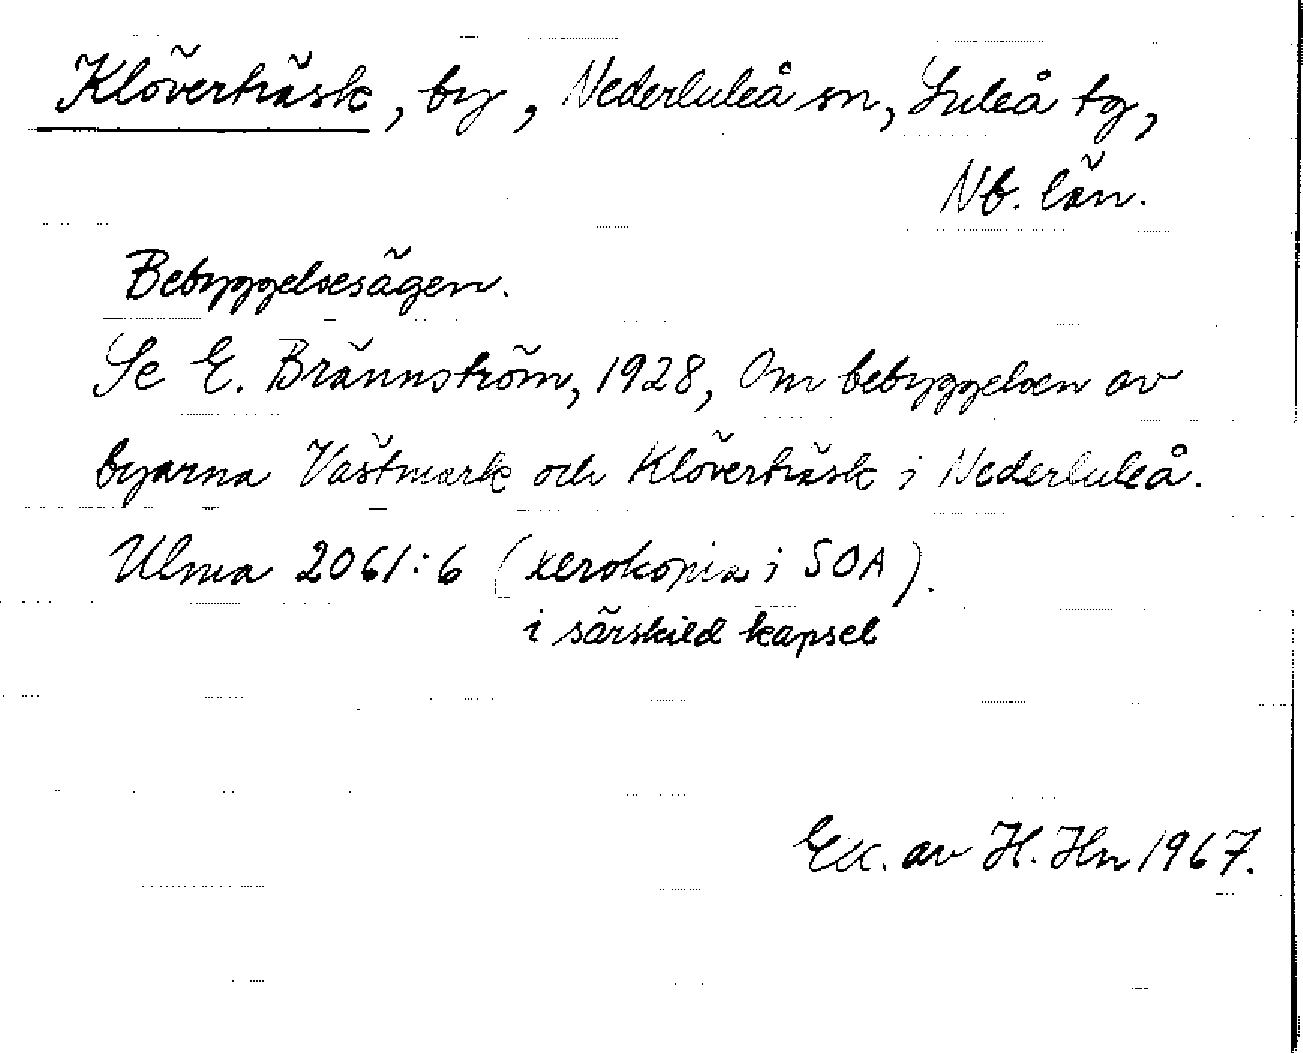 Klöverträsk, by, Nederluleå sn, Luleå tg,
Nb. län.
Bebyggelsesägen.
Se E. Brännström, 1928, Om bebyggelsen av
byarna Västmark och Klöverträsk i Nederluleå.
Ulma 2061:6 (xerokopia i SOA).
i särskild kapsel
Exc. av H. Hn 1967.